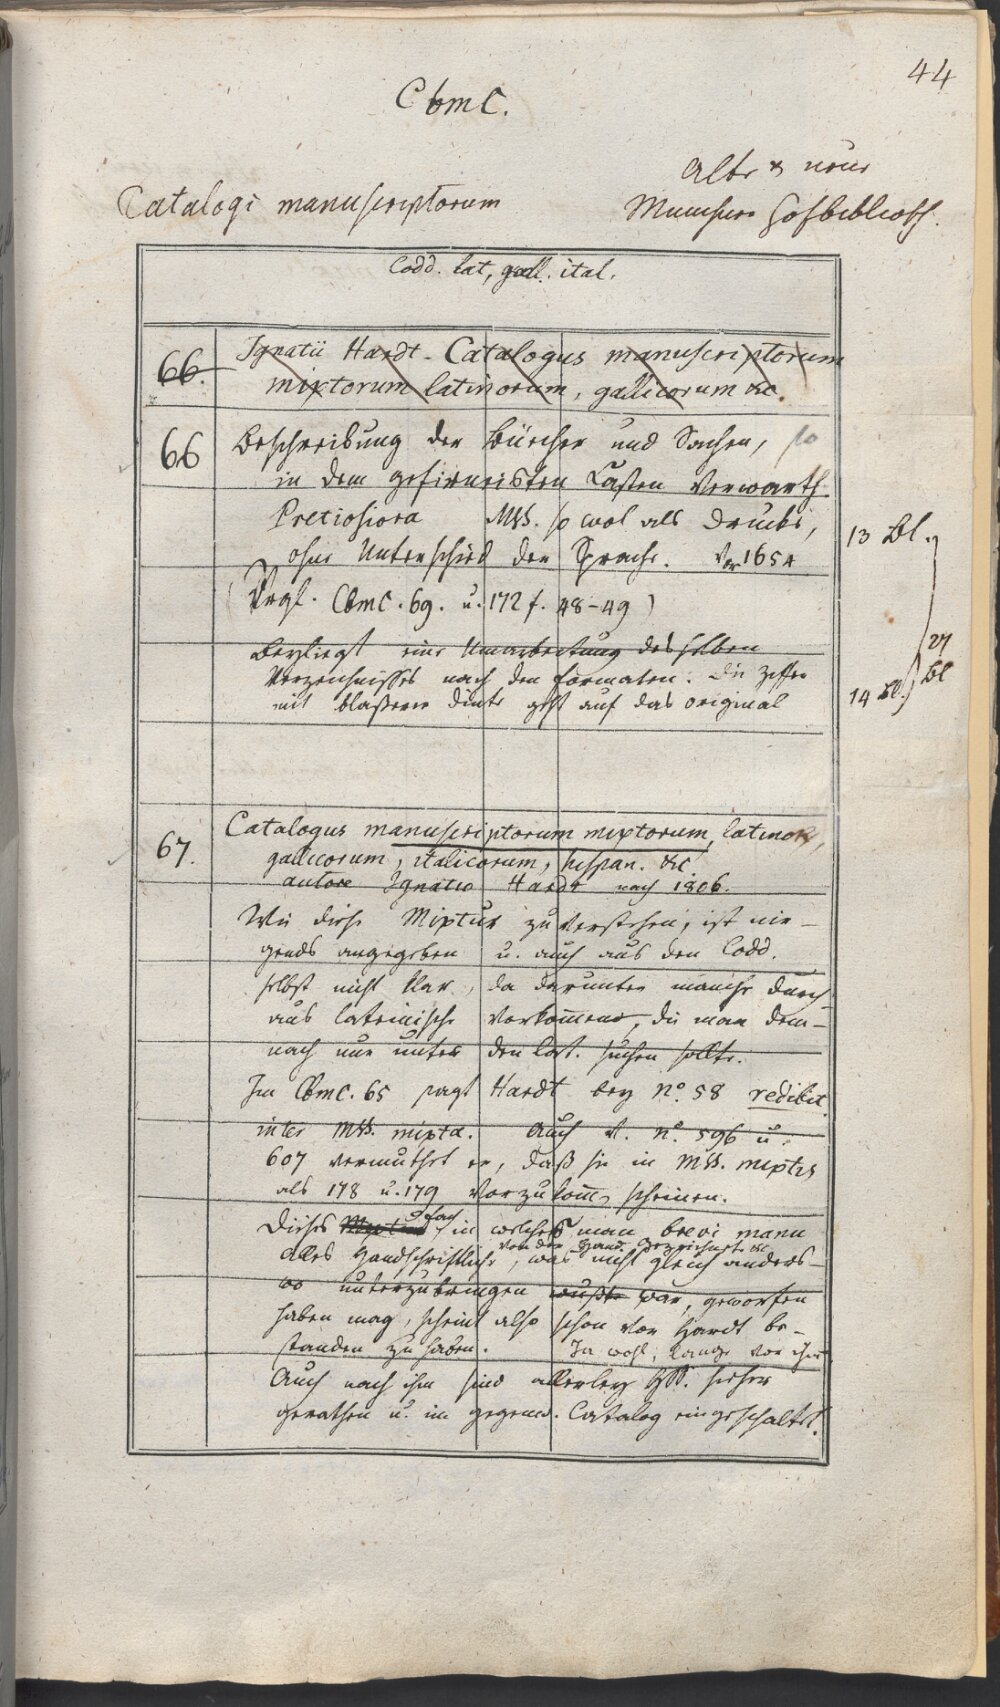 44
Cbm C.
Alte & neue
Catalogi manuscriptorum
Münchner Hofbiblioth.
Codd. lat, gall. ital.
66. Ignatii Hardt - Catalogus manuscriptorum
mixtorum latinorum, gallicorum &c.
66 Beschreibung der Bücher und Sachen, so
in dem gefirneisten Casten verwarth.
Pretiosiora MSS. so wol als Drucke,
ohne Unterschied der Sprache. Vor 1654
13 Bl.
(Vrgl. CbmC. 69. u. 172 f. 48-49)
Beyliegt eine Umarbeitung desselben
27
Verzeichnisses nach den Formaten. Die Ziffer
Bl
mit blaßerer Dinte geht auf das original
14 Bl.
67. Catalogus manuscriptorum mixtorum, latinor,
gallicorum, italicorum, hispan. &c
autore Ignatio Hardt nach 1806.
Wie diese Mixtur zu verstehen, ist nir-
gends angegeben u. auch aus den Codd.
selbst nicht klar, da darunter manche durch
aus lateinische vorkommen, die man dem-
nach nur unter den lat. suchen sollte.
Im CbmC. 65 sagt Hardt bey N°. 58 redibit
inter MSS. mixta. Auch N°. 596 u.
607 vermuthet er, daß sie in MSS. mixtis
als 178 u. 179 vorzukom̄en scheinen.
Dieses Fach in welches man brevi manu
von der Hand Gezeichnete &c
alles Handschriftliche, was nicht gleich anders-
wo unterzubringen wußte war, geworfen
haben mag, scheint also schon vor Hardt be-
standen zu haben. Ja wohl, lange vor ihm
Auch nach ihm sind allerley HSS. hieher
gerathen u. im gegenw. Catalog eingeschaltet.